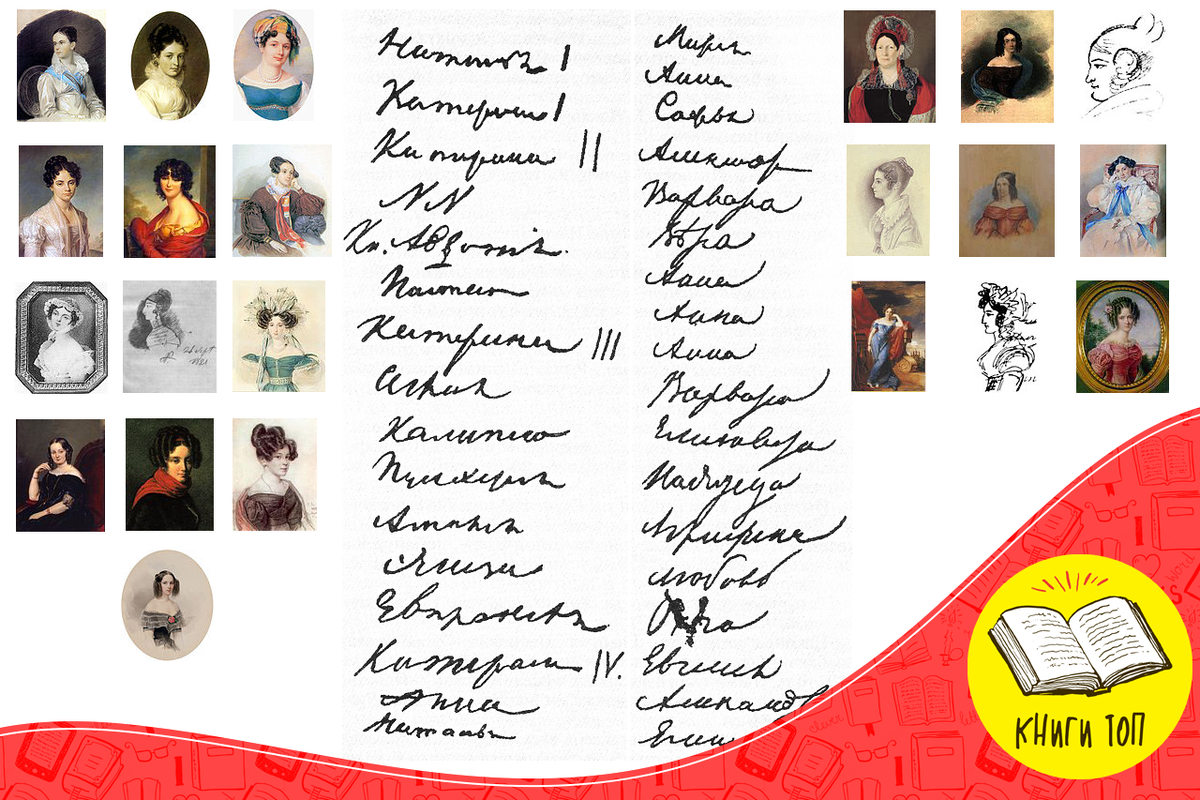 Наталья I
Катерина I
Катерина II
NN
Кн. Авдотія.
Настасья
Катерина III
Аглая
Калипсо
Пульхерия
Амалия
Элиза
Евпраксея
Катерина IV.
Анна
Наталья
Мария
Анна
Софья
Александра
Варвара
Вѣра
Анна
Анна
Анна
Варвара
Елизавета
Надежда
Аграфена
Любовь
Ольга
Евгения
Александр
Елена
КНИГИ ТОП